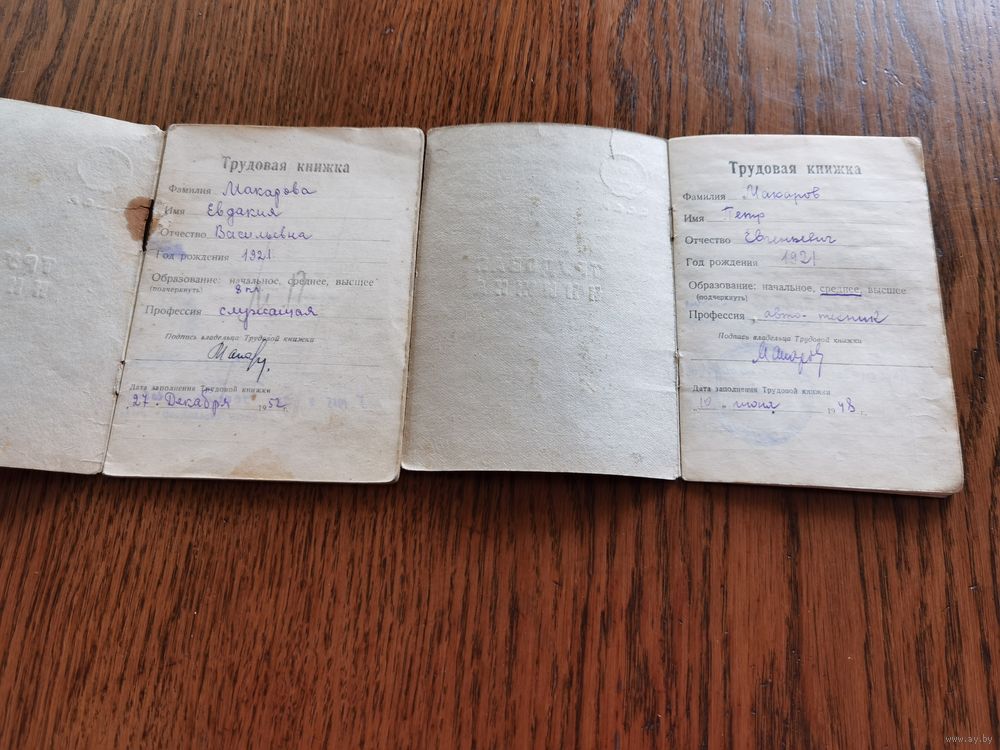 Трудовая книжка
Фамилия Макарова
Имя Евдакия
Отчество Васильевна
Год рождения 1921
Образование: начальное, среднее, высшее
(подчеркнуть) 8 кл
Профессия служащая
Подпись владельца Трудовой книжки
Дата заполнения Трудовой книжки
27. Декабря 1952 г.
Трудовая книжка
Фамилия Макаров
Имя Петр
Отчество Евгеньевич
Год рождения 1921
Образование: начальное, среднее, высшее
(подчеркнуть)
Профессия авто-техник
Подпись владельца Трудовой книжки
Макаров
Дата заполнения Трудовой книжки
10 июня 1948 г.
www.ay.by